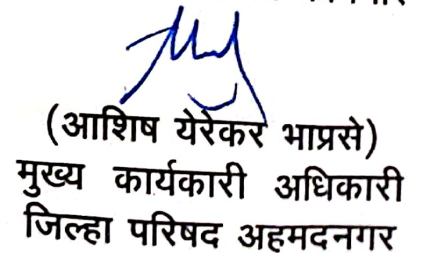 (आशिष येरेकर भाप्रसे)
मुख्य कार्यकारी अधिकारी
जिल्हा परिषद अहमदनगर